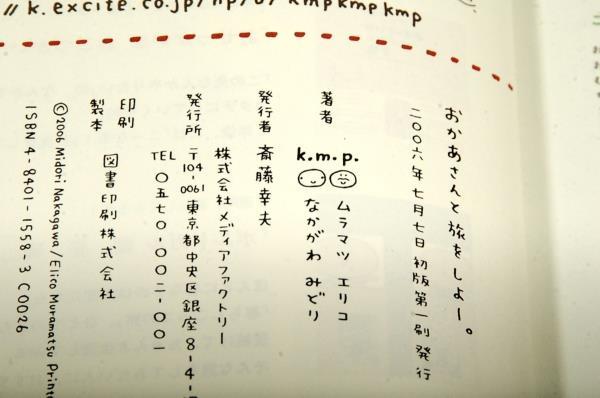 //k.excite.co.jp/hp/u/kmpkmpkmp
おかあさんと旅をしよー。
二〇〇六年七月七日 初版第一刷発行
著者
k.m.p.
ムラマツ エリコ
なかがわ みどり
発行者 斎藤幸夫
発行所 株式会社メディアファクトリー
〒104-0061 東京都中央区銀座8-4-
TEL 〇五七〇-〇〇二-〇〇一
印刷
製本 図書印刷株式会社
©2006 Midori Nakagawa/Elico Muramatsu Printe
ISBN4-8401-1558-3 C0026